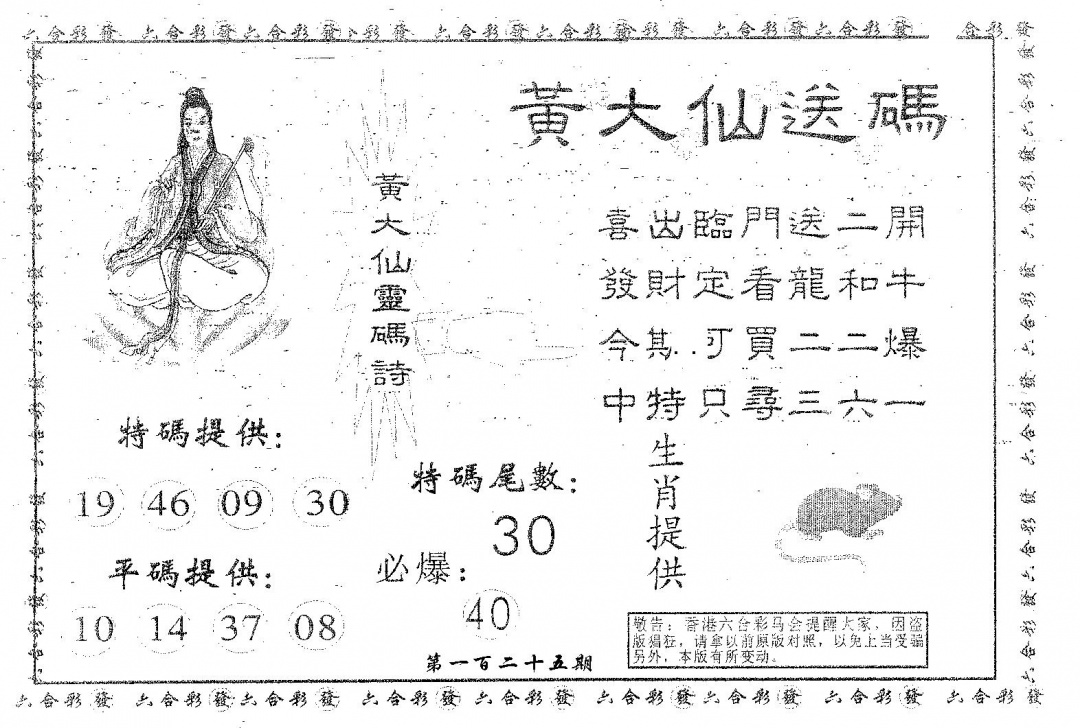 六合彩發 六合彩發六合彩發 彩發 六合彩發六合彩發彩發 六合彩發六合彩發 合彩發
黃大仙送碼
黃大仙靈碼詩
喜出臨門送二開
發財定看龍和牛
今期可買二二爆
中特只尋三六一
特碼提供:
19 46 09 30
平碼提供:
10 14 37 08
特碼尾數:
30
必爆:
40
生肖提供
敬告：香港六合彩马会提醒大家，因盗
版猖狂，请拿以前原版对照，以免上当受骗
另外，本版有所变动。
第一百二十五期
六合彩發 六合彩發六合彩發 六合彩發六合彩發 六合彩發六合彩發 六合彩發 六合彩發